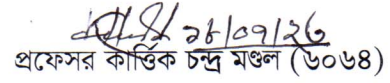 ১৮/০৭/২৬
প্রফেসর কার্ত্তিক চন্দ্র মণ্ডল (৬০৬৪)